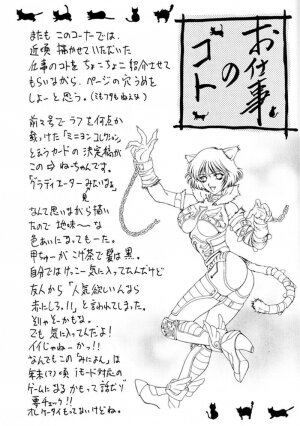 お仕事
の
コト
またも このコーナーでは、
近頃 描かせていただいた
仕事のコトをちょこちょこ紹介させて
もらいながら、ページの穴うめを
しよーと思う。(ミもフタもねぇな)
前々号で ラフを何点か
載っけた「ミーヨンコレクション」
というカードの 決定稿が
この⇨ねーちゃんです。
「グラディエーターみたいなぁ」
なんて思いながら描い
たので 地味〜な
色あいになってもーた。
甲ちゅーが こげ茶で髪は黒。
自分ではけっこー気に入ってたんだけど
友人から「人気欲しいんなら
赤にしろ!!」と言われてしまった。
そりゃそーかもな。
でも 気に入ってんだよ!
イイじゃねーかっ!!
なんでもこの「みによん」は
年末(?)頃 iモード対応の
ゲームになる かもって話だり
要チェック!!
オレケータイもってないけどね。